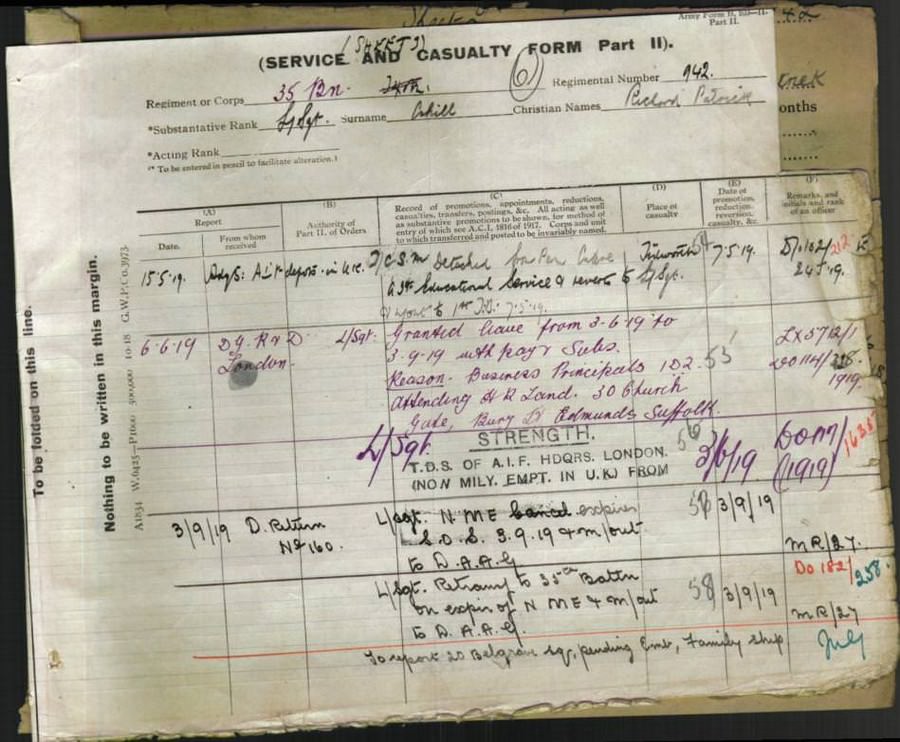 Army Form B. 103—II.
Part II.
(SHEET 3)
(SERVICE AND CASUALTY FORM Part II).
6
Regiment or Corps 35 Bn.
Regimental Number 942.
*Substantive Rank L/Sgt. Surname Cahill Christian Names Richard Patrick
*Acting Rank
(* To be entered in pencil to facilitate alteration.)
onths
To be folded on this line.
Nothing to be written in this margin.
(A)
Report
Date.
From whom received
(B)
Authority of
Part II. of Orders
(C)
Record of promotions, appointments, reductions,
casualties, transfers, postings, &c. All acting as well
as substantive promotions to be shown, for method of
entry of which see A.C.I. 1816 of 1917. Corps and unit
to which transferred and posted to be invariably named.
(D)
Place of
casualty
(E)
Date of
promotion,
reduction,
reversion,
casualty, &c.
(F)
Remarks, and
initials and rank
of an officer
15.5.19. Adqs: A.I.F depots. in U.K. Detached 54 7.5.19.
Educational Service & reverts to L/Sgt.
7.5.19.
6.6.19 DG. R & D London. L/Sgt. Granted leave from 3.6.19 to
3.9.19 with pay & Subs. 55
Reason. Business Principals 1D2.
Attending H R Land. 30 Church
Gate, Bury St Edmunds Suffolk.
L/Sgt STRENGTH. 56 3/6/19 (1919) 1638
T.D.S. OF A.I.F. HDQRS. LONDON.
(NON MILY. EMPT. IN U.K.) FROM
3/9/19 D. Return No 160. L/Sgt. N ME expires 3/9/19
S.O.S. 3.9.19 & m/out
to D.A.A.G MR/27.
DO 182/258.
L/Sgt. to 35th Battn 58 3/9/19
on expir of N ME & m/out
to D.A.A.G. MR/27
To report 20 Belgrave Sq, pending Emb, Family ship. July